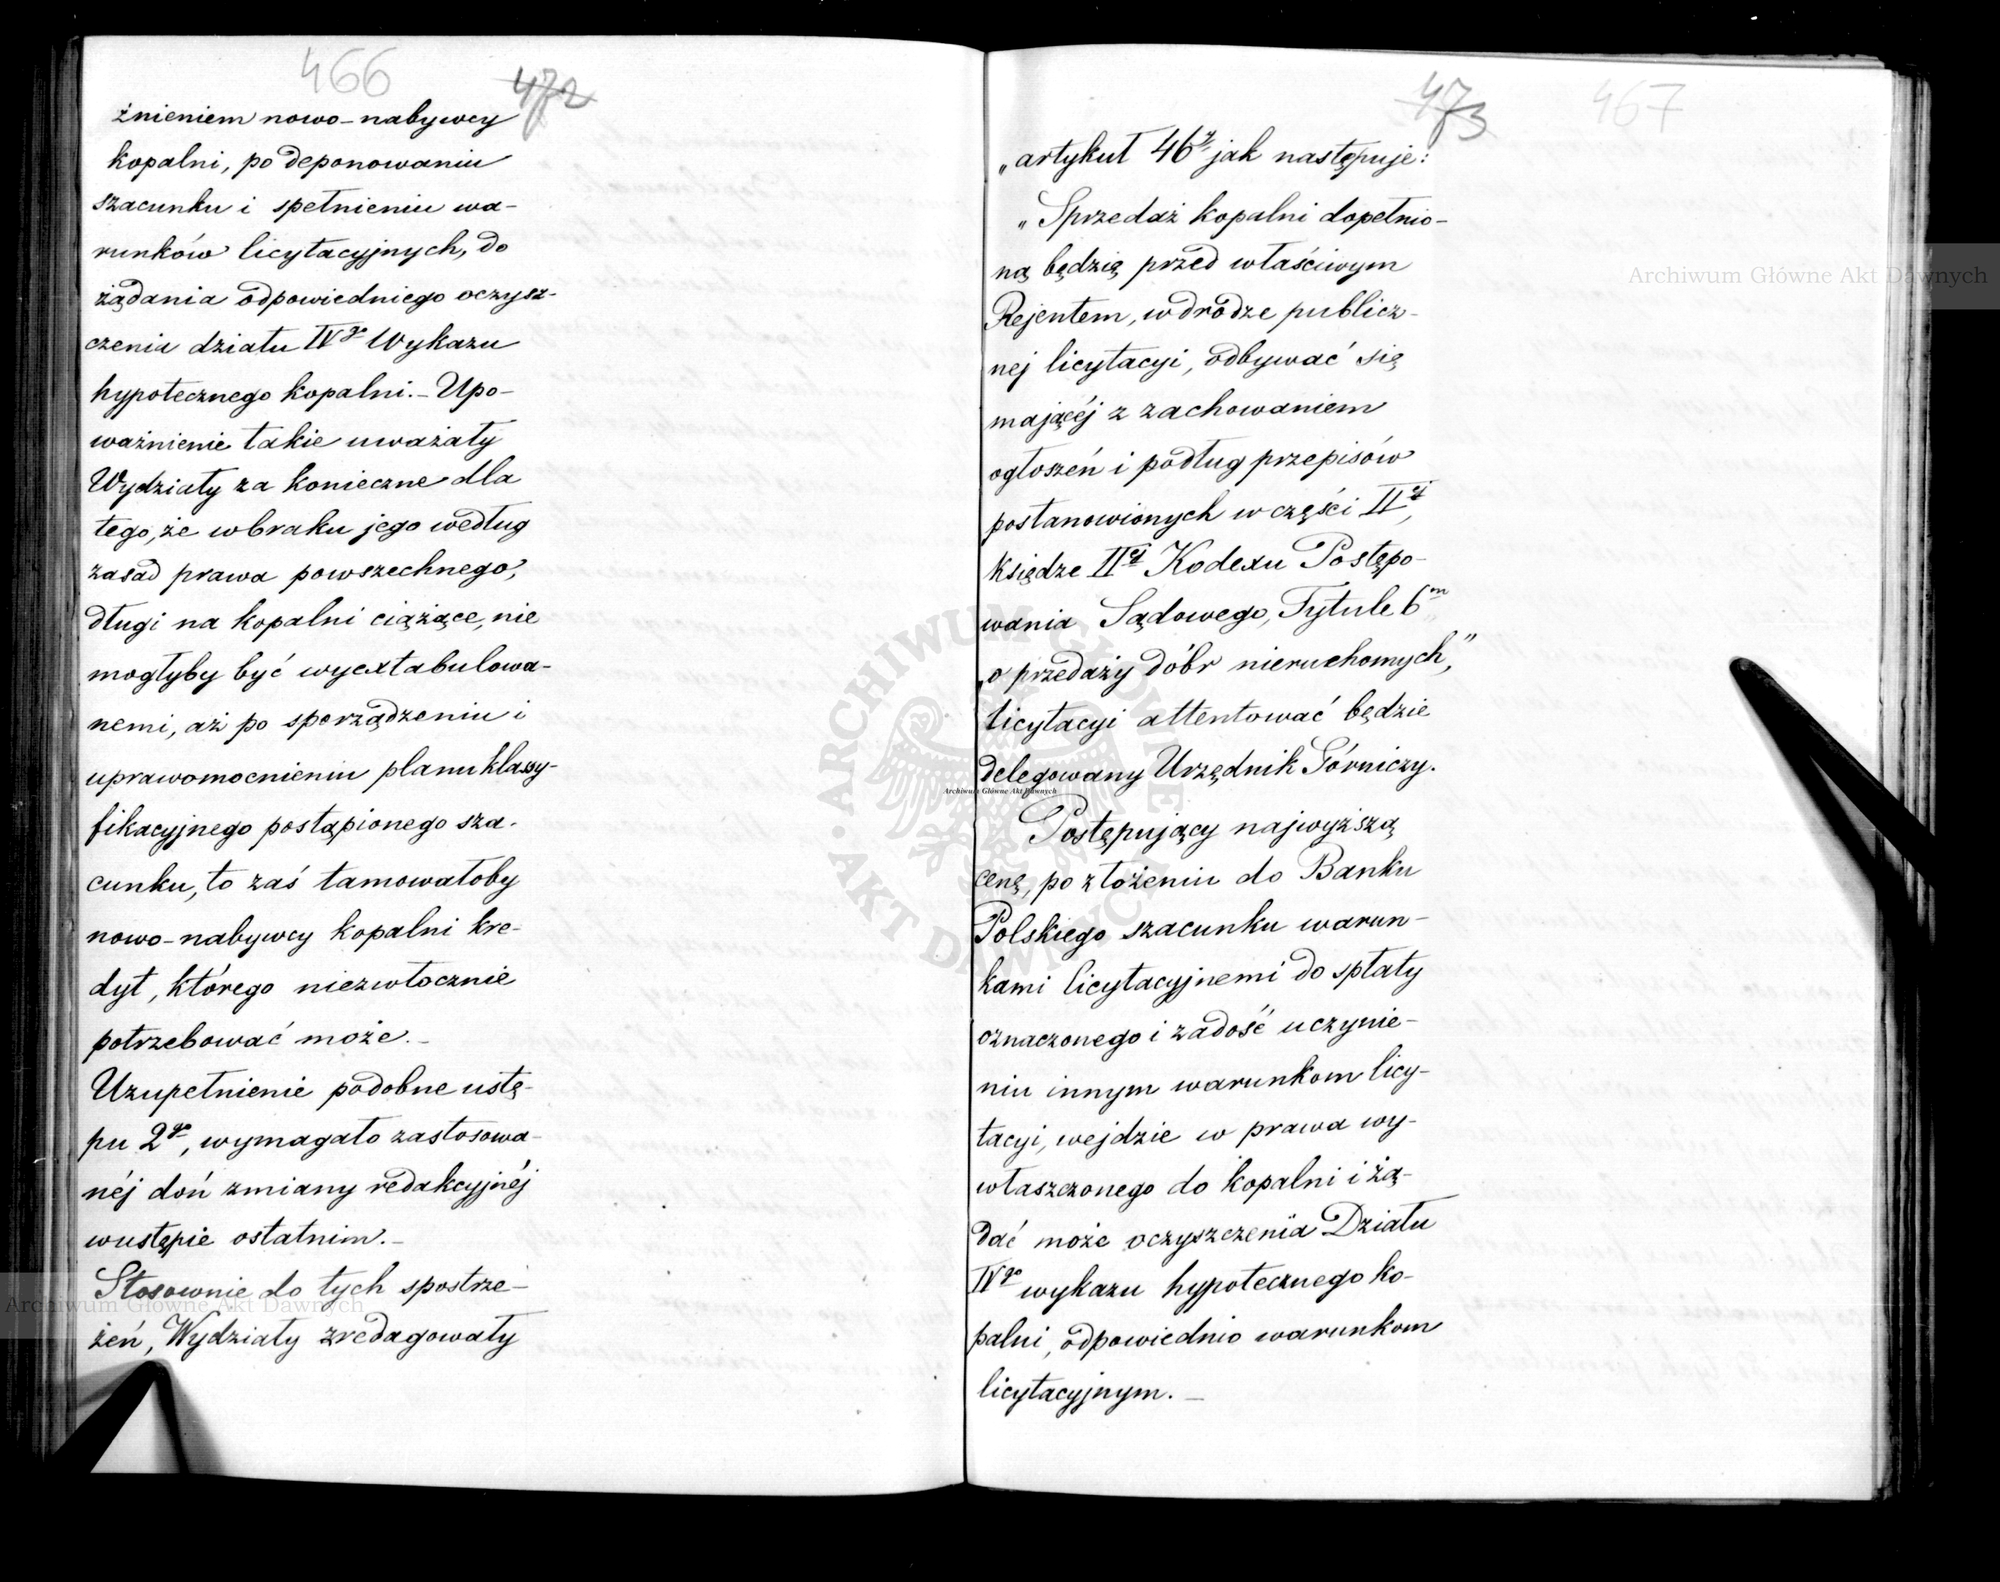 466 472
żnieniem nowo-nabywcy
kopalni, po deponowaniu
szacunku i spełnieniu wa-
runków licytacyjnych, do
żądania odpowiedniego oczysz-
czenia działu IVgo Wykazu
hypotecznego kopalni. - Upo-
ważnienie takie uważały
Wydziały za konieczne dla
tego, że w braku jego według
zasad prawa powszechnego,
długi na kopalni ciążące, nie
mogłyby być wyextabulowa-
nemi, aż po sporządzeniu i
uprawomocnieniu planu klassy-
fikacyjnego postąpionego sza-
cunku, to zaś tamowałoby
nowo-nabywcy kopalni kre-
dyt, którego niezwłocznie
potrzebować może. -
Uzupełnienie podobne ustę-
pu 2go, wymagało zastosowa-
néj doń zmiany redakcyjnéj
w ustępie ostatnim. -
Stosownie do tych spostrze-
żeń, Wydziały zredagowały
473 467
„artykuł 46y jak następuje:
„Sprzedaż kopalni dopełnio-
ną będzię przed właściwym
Rejentem, w drodze publicz-
nej licytacyi, odbywać się
mającéj z zachowaniem
ogłoszeń i podług przepisów
postanowionych w części IIéj,
księdze IIéj Kodexu Postępo-
wania Sądowego, Tytule 6m
„o przedaży dóbr nieruchomych,”
licytacyi attentować będzie
delegowany Urzędnik Górniczy.
Postępujący najwyższą
cenę, po złożeniu do Banku
Polskiego szacunku warun-
kami licytacyjnemi do spłaty
oznaczonego i zadość uczynie-
niu innym warunkom licy-
tacyi, wejdzie w prawa wy-
właszczonego do kopalni i żą-
dać może oczyszczenia Działu
IVgo wykazu hypotecznego ko-
palni, odpowiednio warunkom
licytacyjnym. -
Archiwum Główne Akt Dawnych
Archiwum Główne Akt Dawnych
Archiwum Główne Akt Dawnych